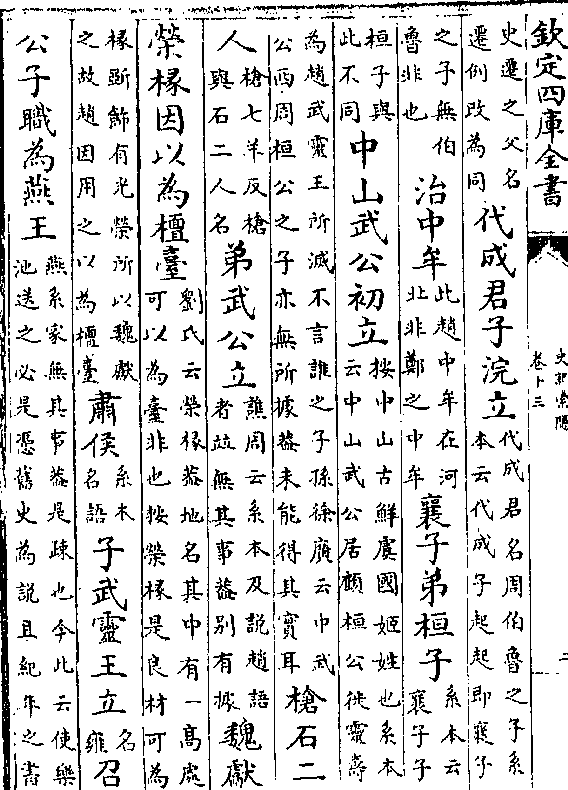 欽定四庫全書
史記索隱
卷十三
二
史遷之父名
遷例改為同
代成君子浣立
代成君名周伯魯之子系
本云代成子起起即襄子
之子無伯
魯非也
治中牟
此趙中牟在河
北非鄭之中牟
襄子弟桓子
系本云
襄子子
桓子與
此不同
中山武公初立
按中山古鮮虞國姬姓也系本
云中山武公居顧桓公徙靈壽
為趙武靈王所滅不言誰之子孫徐廣云中武
公西周桓公之子亦無所據蓋未能得其實耳
槍石二
人
槍七羊反槍
與石二人名
弟武公立
譙周云系本及說趙語
者竝無其事蓋別有據
魏獻
榮椽因以為檀臺
劉氏云榮椽蓋地名其中有一高處
可以為臺非也按榮椽是良材可為
椽斲飾有光榮所以魏獻
之故趙因用之以為檀臺
肅侯
系本
名語
子武靈王立
名
雍
召
公子職為燕王
燕系家無其事蓋是疎也今此云使樂
池送之必是憑舊史為說且紀年之書